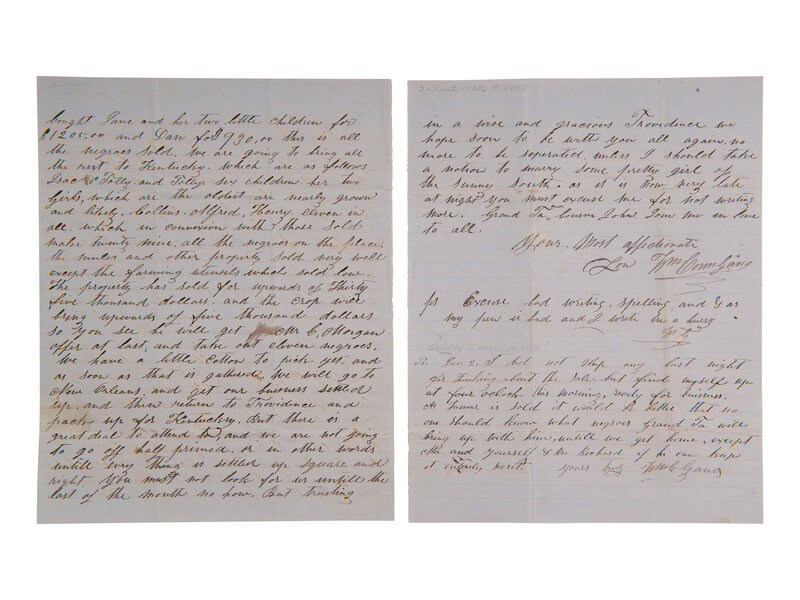 bought Jane and her two little children for
$1205,00 and Dan for $930,00 this is all
the negroes sold. We are going to bring all
the rest to Kentucky. which are as follows
Isac & Totty, and Tottys six children her two
Girls, which are the oldest are nearly grown
and likely. Collins. Alfred, Henry, eleven in
all, which in connexion with those sold
make twenty nine. all the negroes on the place.
the mules and other property sold very well
except the farming utensils which sold low.
The property has sold for upwards of Thirty
five thousand dollars. and the crop will
bring upwards of five thousand dollars
so you see he will get Mr C, Morgan
offer at last, and take out eleven negroes.
We have a little cotton to pick yet. and
as soon as that is gathered, we will go to
New Orleans, and get our business settled
up. and then return to Providence and
pack up for Kentuckey. But there is a
great deal to attend to, and we are not going
to go off half primed. or in other words
untill every thing is settled up square and
right. You must not look for us untill the
last of the month no how. But trusting
in a wise and gracious Providence we
hope soon to be with you all again, no
more to be seperated unless I should take
a notion to marry some pretty girl of
the sunny South. as it is now very late
at night you must excuse me for not writing
more. Grand Pa. Cousin John Join me in love
to all.
Your Most affectionate
Son Wm Conn Gano
ps Excuse bad writing, spelling and & as
my pen is bad and I write in a hurry
W G
Guilty Conscience!
Jan 2. I did not sleep any last night
for thinking about the sale. but find myself up
at four oclock this morning, ready for business.
As Tamar is sold it would be better that no
one should know what negroes Grand Pa will
bring up with him, untill we get home, except
Ma and yourself & Un Richard if he can keep
it entirely secret. Yours truly WmC Gano